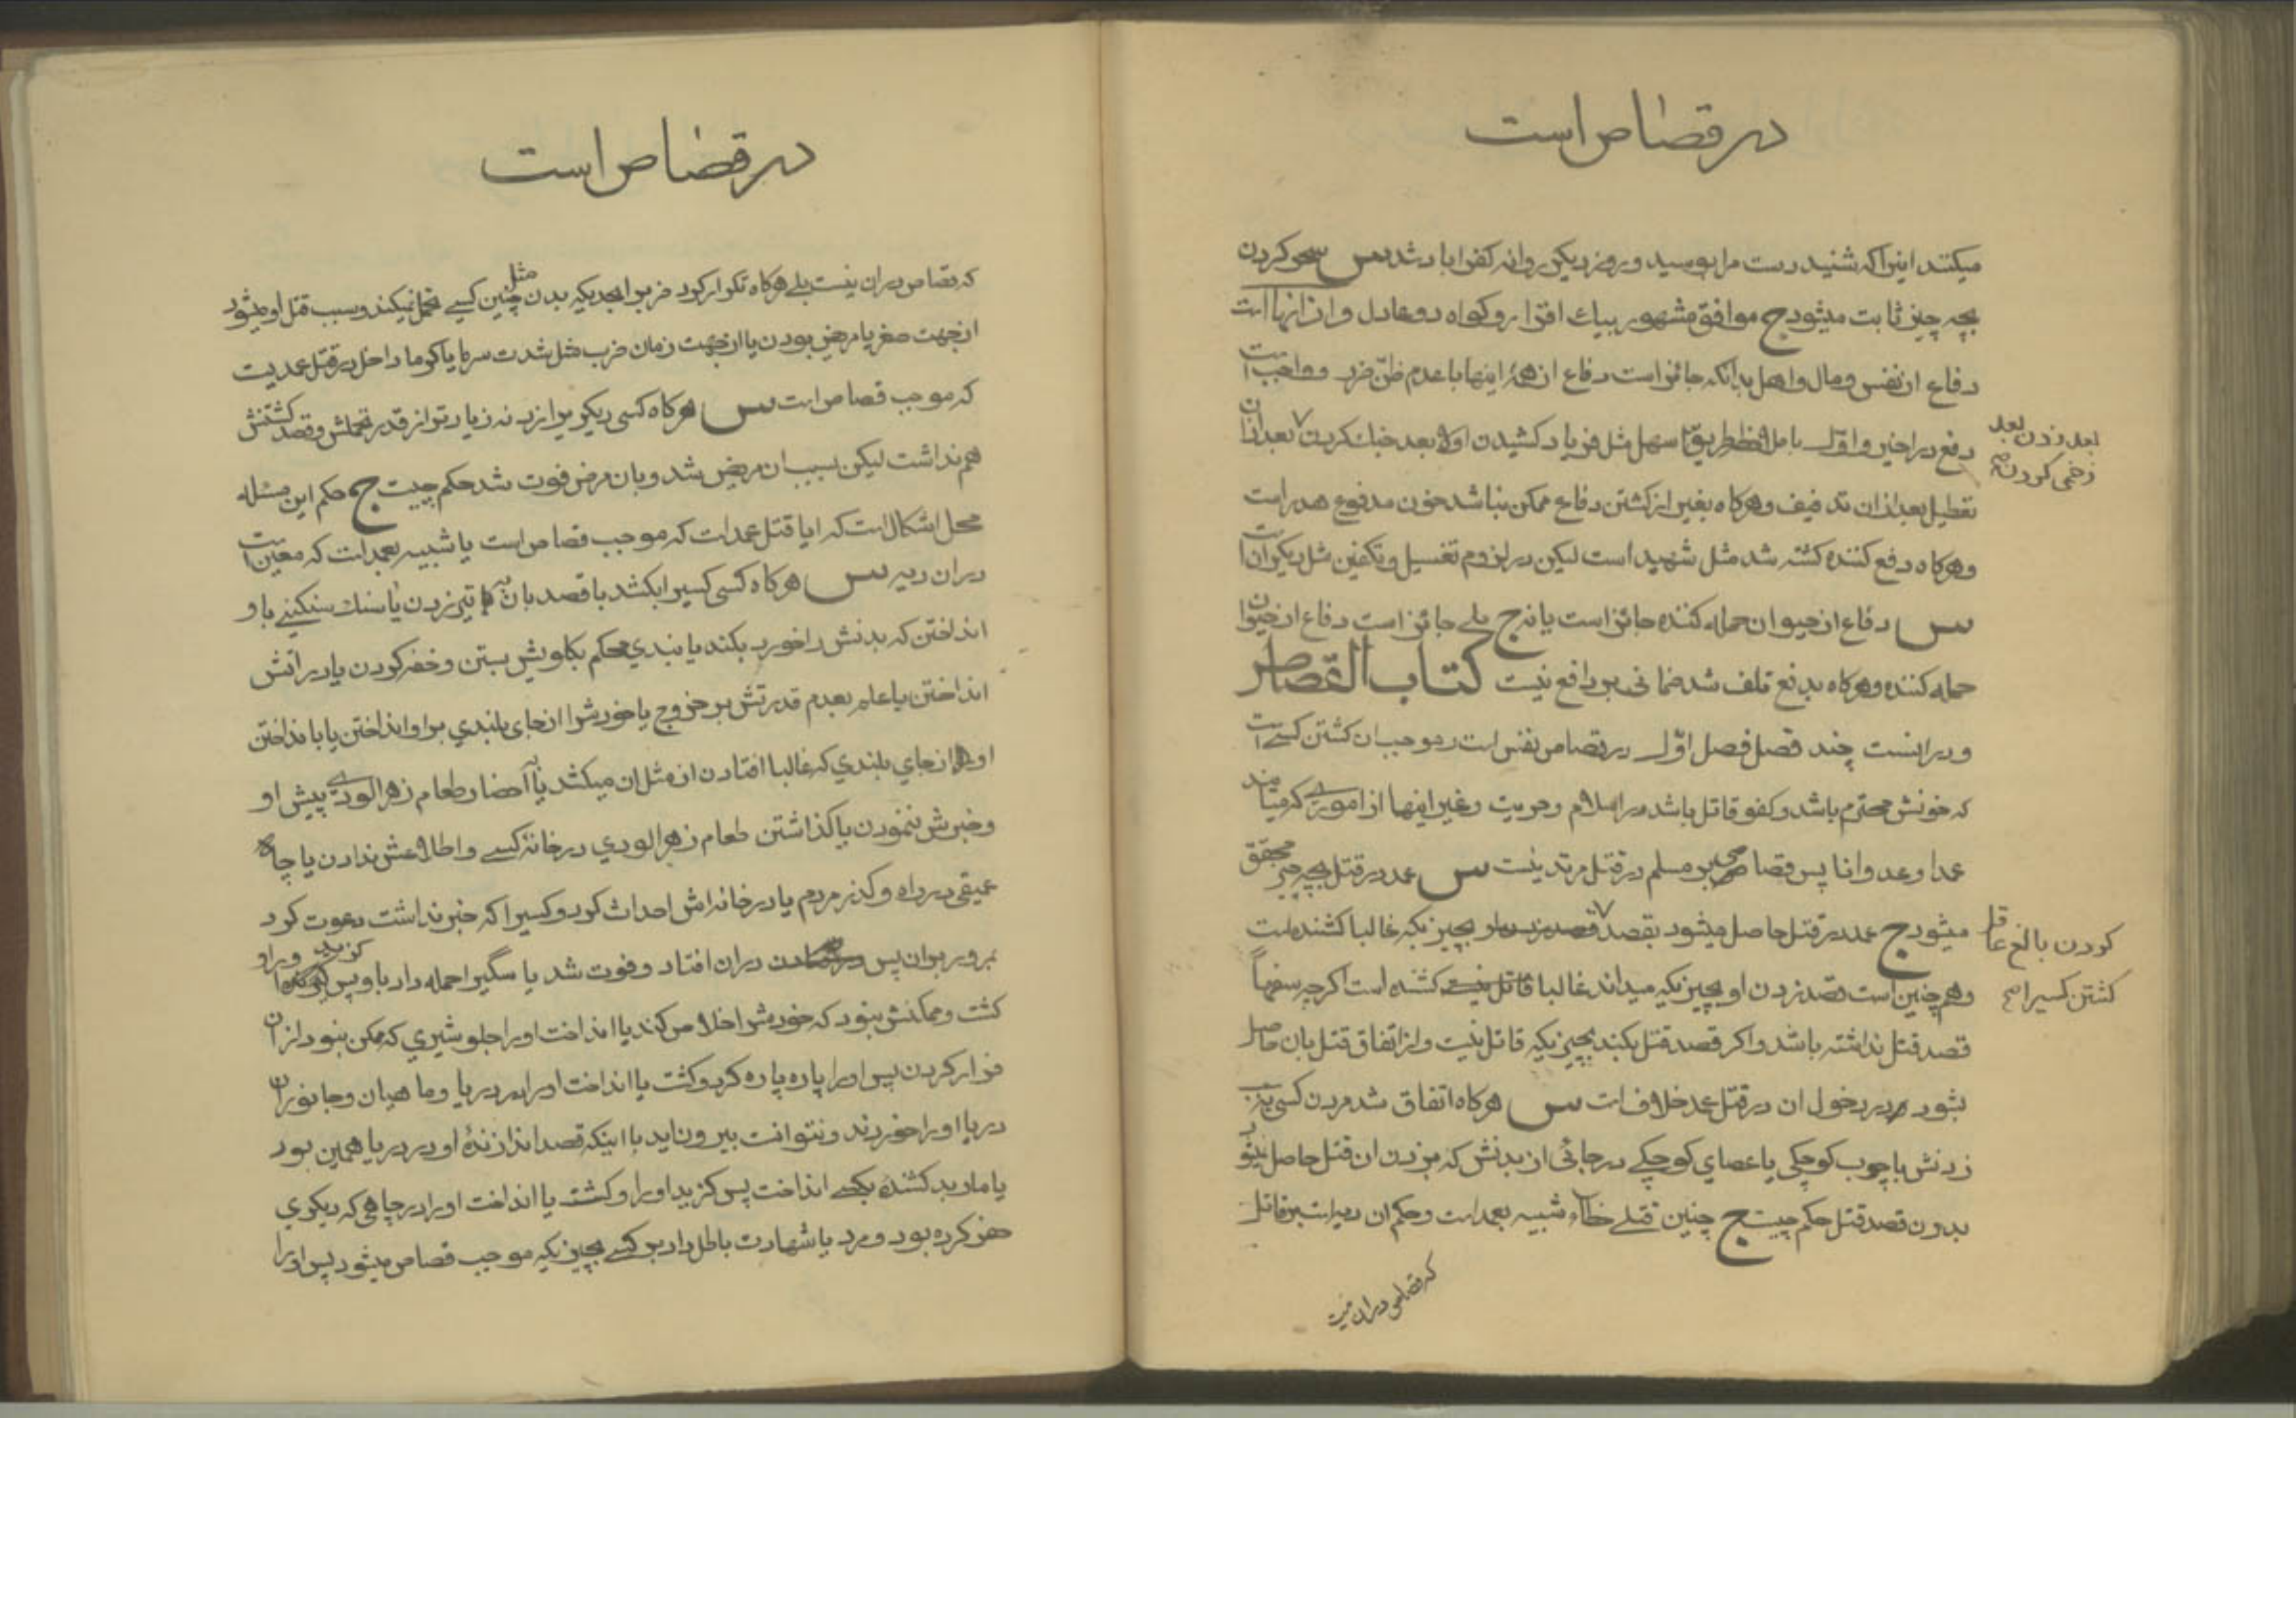 در قصاص است
میکشند این را که شنید دست مرا بوسید و روز دیگر روانه کفرآباد شد س سحر کردن
بچه چیز ثابت میشود ج موافق مشهور بیك اقرار و کواه دو عادل و از انهااست
دفاع از نفس و مال و اهل بدانکه جائز است دفاع از همۀ اینها با عدم ظنّ ضرر و واجب است
دفع در اخیر و اوّلا باید طریق سهل مثل فریاد کشیدن اولا بعد جنك کردن بعد از ان
بعد زدن بعد
زخمی کردن صح
تعطیل بعد از ان تدفیف و هرکاه بغیر از کشتن دفاع ممکن نباشد خون مدفوع هدر است
و هرکاه دفع کننده کشته شد مثل شهید است لیکن در لزوم تغسیل و تکفین مثل دیکران است
س دفاع از حیوان حمله کننده جائز است یا نه ج بلی جائز است دفاع از حیوان
حمله کننده و هرکاه بدفع تلف شد ضمانی بر دافع نیست کتاب القصاص
و در انست چند فصل فصل اوّل در قصاص نفس است و موجب ان کشتن کسی است
که خونش محترم باشد و کفو قاتل باشد در اسلام و حریت و غیر اینها از اموری که میاید
عمدا و عدوانا پس قصاصی بر مسلم در قتل مرتد نیست س عمد در قتل بچه چیز محقق
میشود ج عمد در قتل حاصل میشود بقصد بچیزیکه غالبا کشنده است
کردن بالغ عاقل
کشتن کسیرا صح
و همچنین است قصد زدن او بچیزیکه میداند غالبا کشنده است اکرچه
قصد قتل نداشته باشد و اکر قصد قتل بکند بچیزیکه قاتل نیست و از اتفاق قتل بان حاصل
بشود در دخول ان در قتل عمد خلاف است س هرکاه اتفاق شد مردن کسی بسبب
زدنش با چوب کوچکی یا عصای کوچکی در جائی از بدنش که بزدن ان قتل حاصل نمیشود
بدون قصد قتل حکم چیست ج چنین قتلی خطاء شبیه بعمد است و حکم ان دیه است بر قاتل
که قصاص در ان نیست
در قصاص است
که قصاص در ان نیست بلی هرکاه تکرار کرد ضرب را بحدیکه بدن مثل چنین کسی تحمل نمیکند و سبب قتل او میشود
از جهت صغر یا مریض بودن یا از جهت زمان ضرب مثل شدت سرما یا کرما داخل در قتل عمدیست
که موجب قصاص است س هرکاه کسی دیکری را زد نه زیادتر از قدر تحملش و قصد کشتنش
هم نداشت لیکن بسبب ان مریض شد و بان مرض فوت شد حکم چیست ج حکم این مسئله
محل اشکال است که ایا قتل عمد است که موجب قصاص است یا شبیه بعمد است که معین است
در ان دیه س هرکاه کسی کسیرا بکشد با قصد بان به تیر زدن یا سنك سنکینی باو
انداختن که بدنش را خورد بکند یا بندی محکم بکلویش بستن و خفه کردن یا در اتش
انداختن با علم بعدم قدرتش بر خروج یا خودش را از جای بلندی بر او انداختن یا با نداختن
او از جای بلندی که غالبا افتادن از مثل ان میکشد یا به احضار طعام زهرالودی پیش او
و خبرش ننمودن یا کذاشتن طعام زهرالودی در خانۀ کسی و اطلاعش ندادن یا چاه
عمیقی در راه و کذر مردم یا در خانه اش احداث کرد و کسیرا که خبر نداشت دعوت کرد
بمرور بر ان پس در ان افتاد و فوت شد یا سگیرا حمله داد باو پس کزید و را و
کشت و ممکنش نبود که خودش را خلاص کند یا انداخت او را جلو شیری که ممکن نبود از ان
فرار کردن پس او را پاره پاره کرد و کشت یا انداخت او را در دریا و ماهیان و جانوران
دریا او را خوردند و نتوانست بیرون اید با اینکه قصد اندازندۀ او در دریا همین بود
یا مار بد کشنده بکسی انداخت پس کزید او را و کشت یا انداخت او را در چاهی که دیکری
حفر کرده بود و مرد یا شهادت باطل داد بر کسی بچیزیکه موجب قصاص میشود پس او را